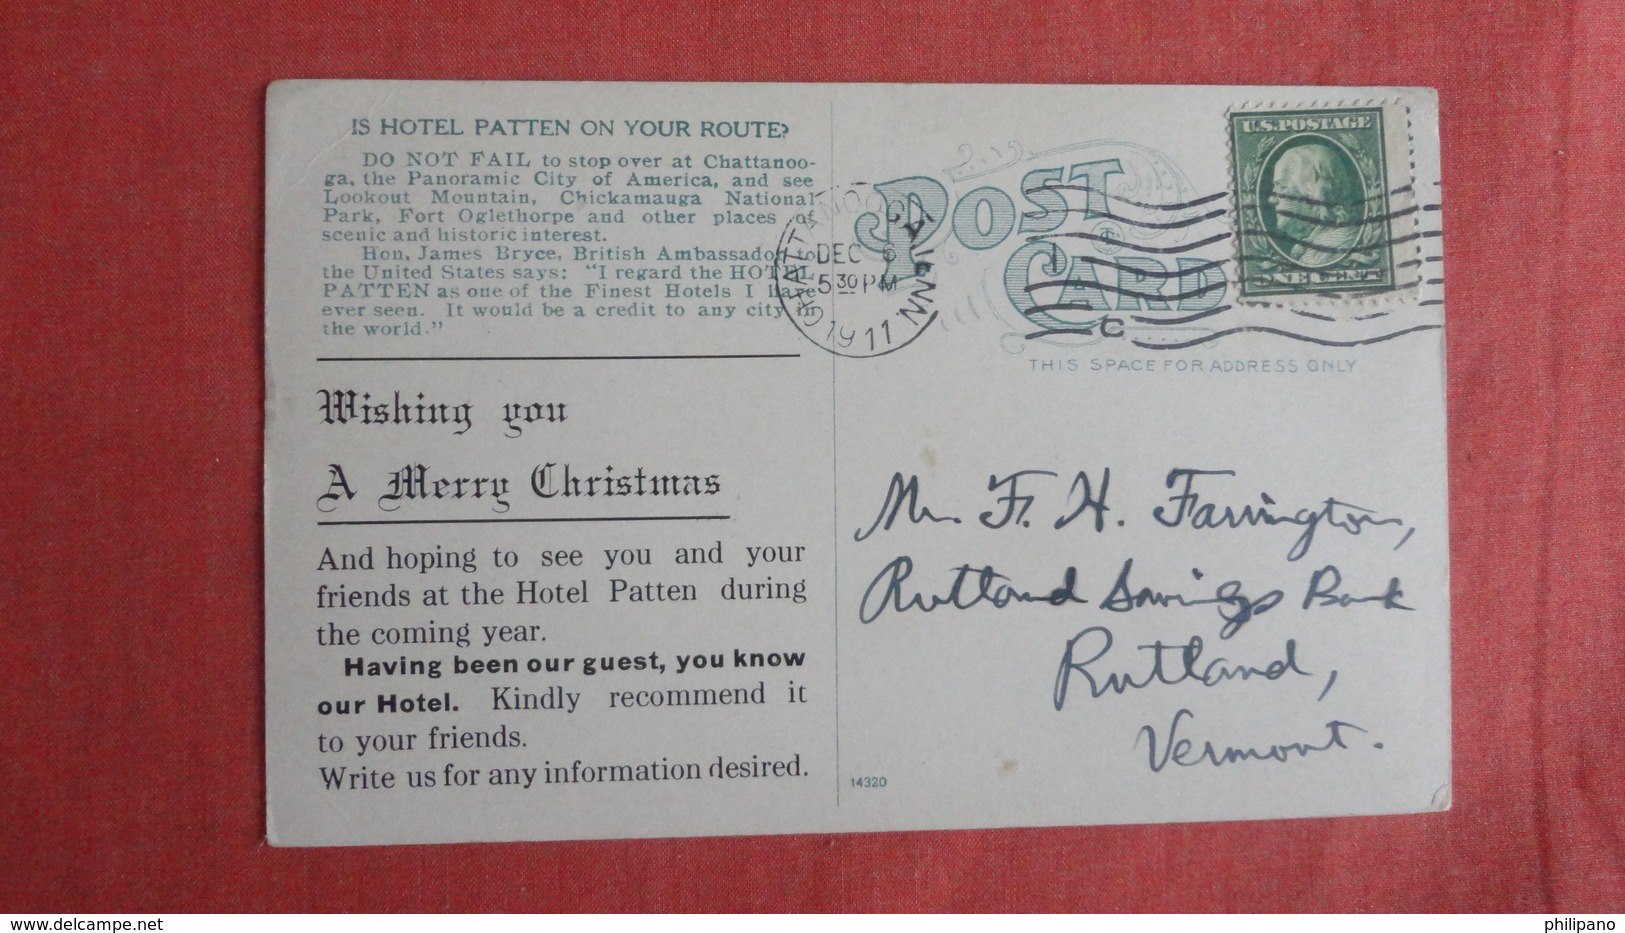 IS HOTEL PATTEN ON YOUR ROUTE?
DO NOT FAIL to stop over at Chattanoo-
ga, the Panoramic City of America, and see
Lookout Mountain, Chickamauga National
Park, Fort Oglethorpe and other places of
scenic and historic interest.
Hon. James Bryce, British Ambassador to
the United States says: "I regard the HOTEL
PATTEN as one of the Finest Hotels I have
ever seen. It would be a credit to any city in
the world."
Wishing you
A Merry Christmas
And hoping to see you and your
friends at the Hotel Patten during
the coming year.
Having been our guest, you know
our Hotel. Kindly recommend it
to your friends.
Write us for any information desired.
CHATTANOOGA, TENN.
DEC 6
5 30 PM
1911
POST
CARD
1
C
U.S. POSTAGE
ONE CENT
THIS SPACE FOR ADDRESS ONLY.
Mr. F. H. Farrington,
Rutland Savings Bank
Rutland,
Vermont.
14320
https://www.delcampe.net
philipano